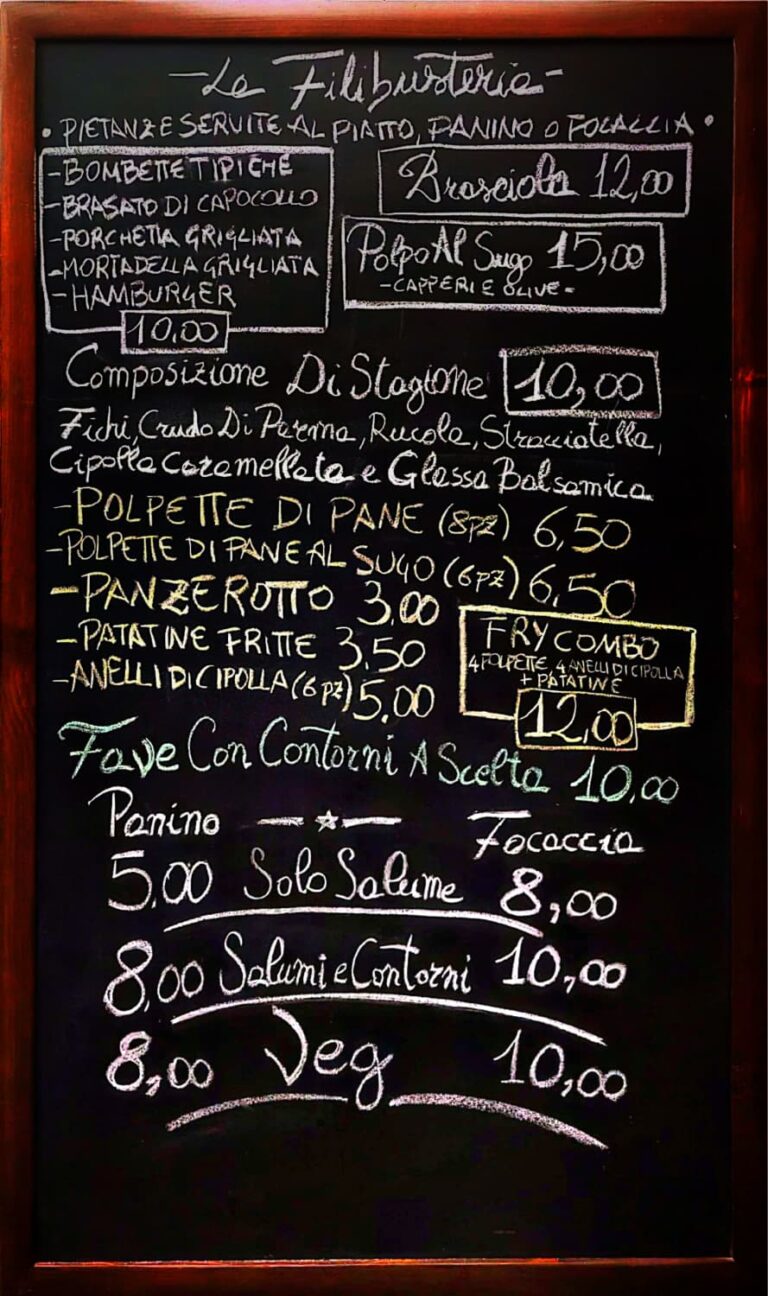 - La Filibusteria -
• PIETANZE SERVITE AL PIATTO, PANINO O FOCACCIA •
- BOMBETTE TIPICHE
- BRASATO DI CAPOCOLLO
- PORCHETTA GRIGLIATA
- MORTADELLA GRIGLIATA
- HAMBURGER
10,00
Brasciola 12,00
Polpo Al Sugo 15,00
- CAPPERI E OLIVE -
Composizione Di Stagione 10,00
Fichi, Crudo Di Parma, Rucola, Stracciatella,
Cipolla Caramellata e Glassa Balsamica
- POLPETTE DI PANE (8PZ) 6,50
- POLPETTE DI PANE AL SUGO (6PZ) 6,50
- PANZEROTTO 3,00
- PATATINE FRITTE 3,50
- ANELLI DI CIPOLLA (6 PZ) 5,00
FRY COMBO
4 POLPETTE, 4 ANELLI DI CIPOLLA
+ PATATINE
12,00
Fave Con Contorni A Scelta 10,00
Panino — ☆ — Focaccia
5,00 Solo Salume 8,00
8,00 Salumi e Contorni 10,00
8,00 Veg 10,00